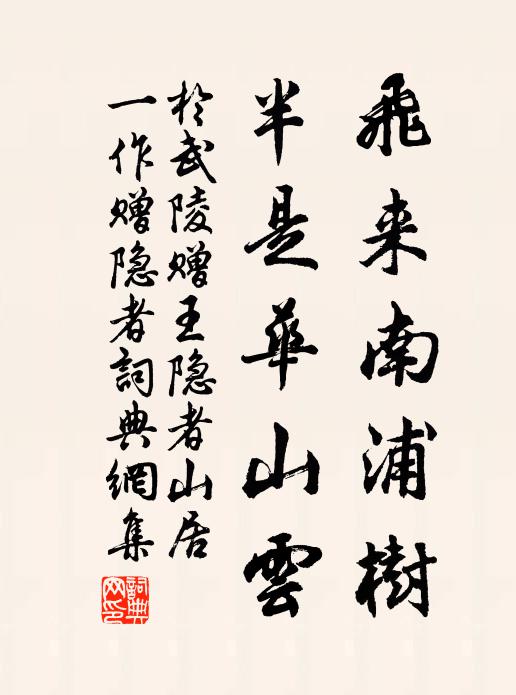 飛来南浦樹
半是華山雲
於武陵赠王隐者山居
一作赠隐者詞典網集
詞典网印